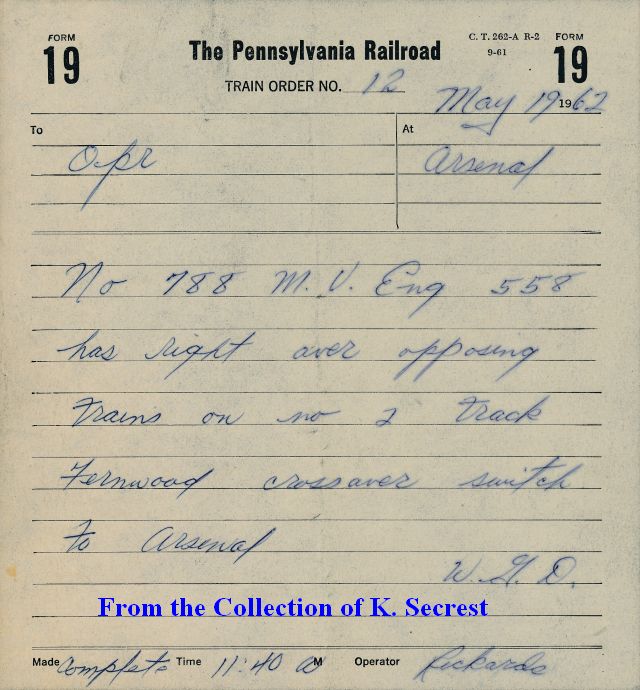 FORM 19
The Pennsylvania Railroad
C. T. 262-A R-2
9-61
FORM 19
TRAIN ORDER NO. 12
May 19 1962
To
At
Opr
Arsenal
No 788 M. V. Eng 558
has right over opposing
trains on no 2 track
Fernwood crossover switch
to Arsenal
W. G. D.
From the Collection of K. Secrest
Made Complete Time 11:40 a M Operator Rickards